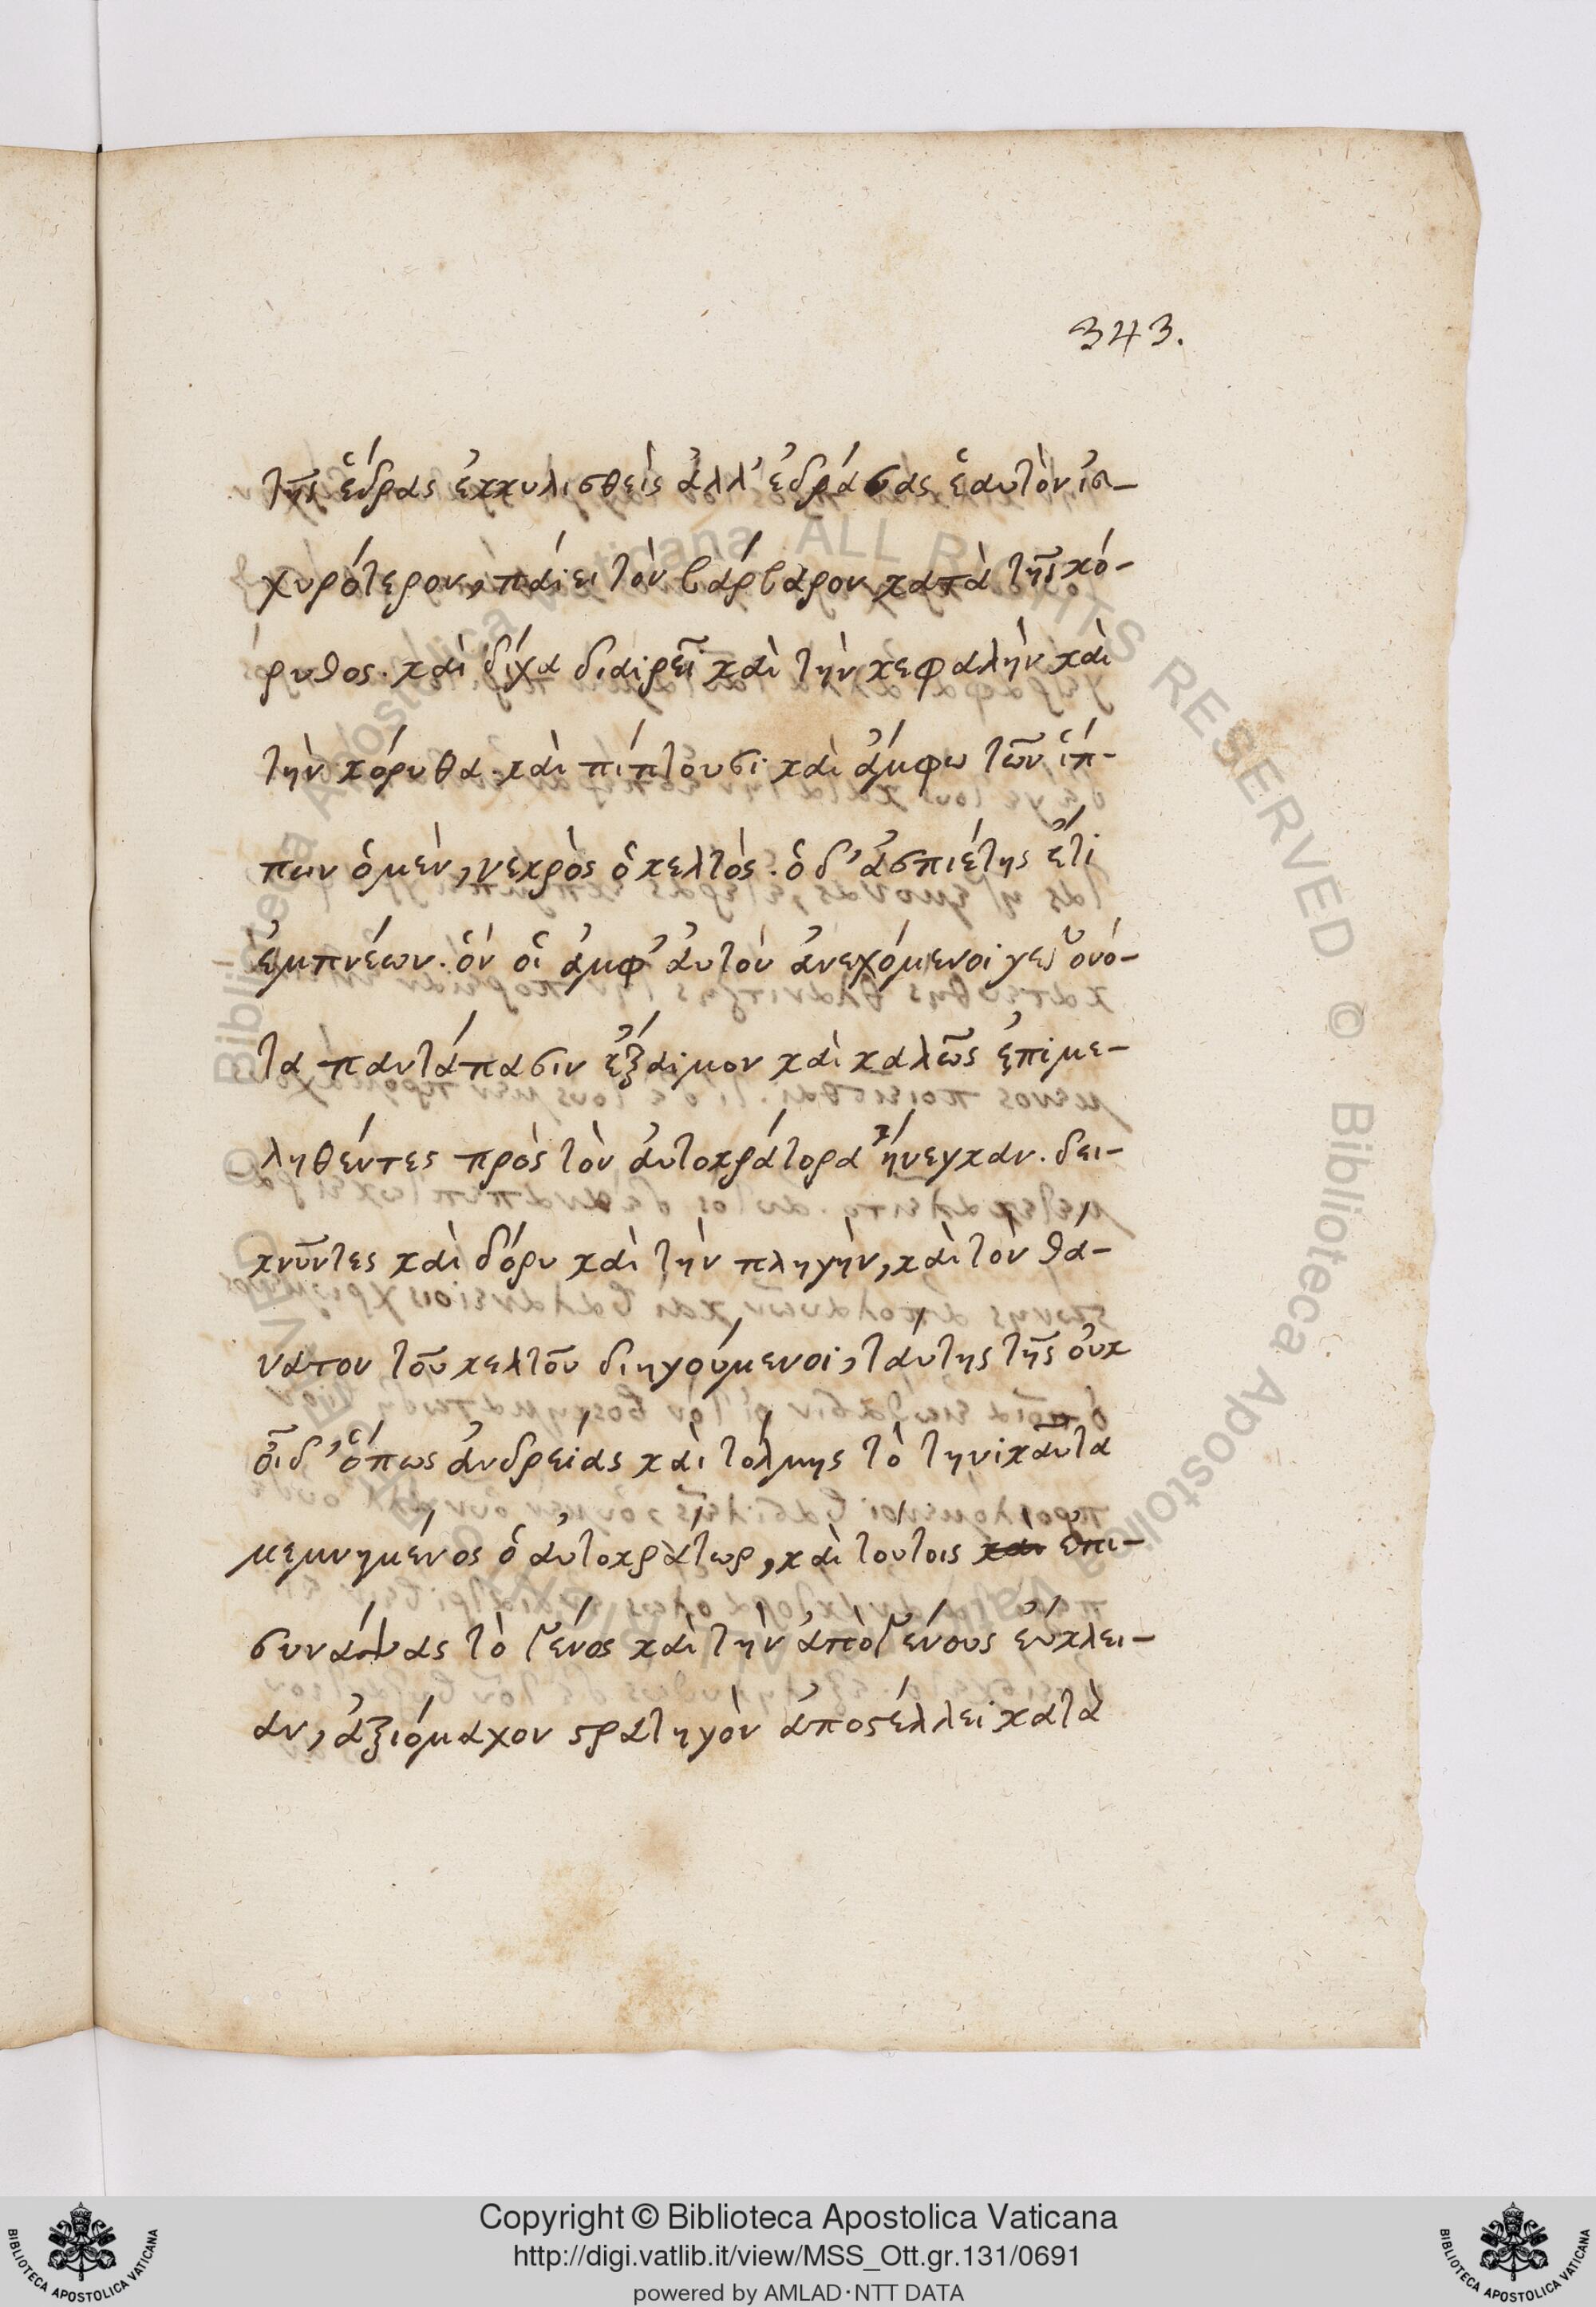 343.
τῆς ἕδρας ἐκκυλισθεὶς ἀλλ' ἑδράσας ἑαυτὸν ἰσ-
χυρότερον, παίει τὸν βάρβαρον κατὰ τῆς κό-
ρυθος. καὶ δίχα διαιρεῖ καὶ τὴν κεφαλὴν καὶ
τὴν κόρυθα. καὶ πίπτουσι καὶ ἄμφω τῶν ἵπ-
πων ὁ μὲν, νεκρὸς ὁ κελτὸς. ὁ δ' ἀσπιέτης ἔτι
ἐμπνέων. ὃν οἱ ἀμφ' αὐτὸν ἀνεχόμενοι γεγονό-
τα παντάπασιν ἔξαιμον καὶ καλῶς ἐπιμε-
ληθέντες πρὸς τὸν αὐτοκράτορα ἤνεγκαν. δει-
κνῦντες καὶ δόρυ καὶ τὴν πληγὴν, καὶ τὸν θά-
νατον τοῦ κελτοῦ διηγούμενοι, ταύτης τῆς οὐκ
οἶδ' ὅπως ἀνδρείας καὶ τόλμης τὸ τηνικαῦτα
μεμνημένος ὁ αὐτοκράτωρ, καὶ τούτοις καὶ ἐπι-
συνάψας τὸ γένος καὶ τὴν ἀπὸ γένους εὔκλει-
αν, ἀξιόμαχον στρατηγὸν ἀποστέλλει κατὰ
Biblioteca Apostolica Vaticana ALL RIGHTS RESERVED © Biblioteca Apostolica Vaticana ALL RIGHTS RESERVED ©
Copyright © Biblioteca Apostolica Vaticana
http://digi.vatlib.it/view/MSS_Ott.gr.131/0691
powered by AMLAD·NTT DATA
BIBLIOTECA APOSTOLICA VATICANA
BIBLIOTECA APOSTOLICA VATICANA